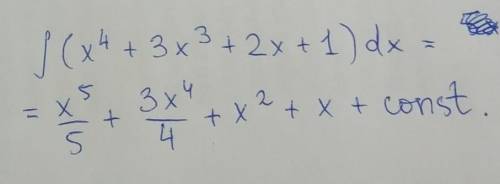 ∫(x⁴ + 3x³ + 2x + 1)dx =
= x⁵/5 + 3x⁴/4 + x² + x + const.